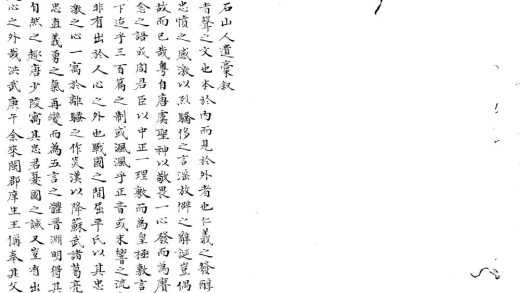 石山人遺藁叙
者聲之文也本於內而見於外者也仁義之發醇
忠憤之感激以烈驕侈之言淫放僻之辭誕豈偶
故而已哉粤自唐虞聖神以敬畏一心發而為賡
念之語或周君臣以中正一理敷而為皇極敷言
下迨乎三百篇之制或渢渢乎正音或末響之流
非有出於人心之外也戰國之間屈平氏以其忠
激之心一寓於離騷之作炎漢以降蘇武諸葛亮
忠直義勇之氣再變而為五言之體晉淵明得其
自然之趣唐少陵寓其忠君憂國之誠又豈有出
心之外哉洪武庚午余來閩郡庠生王偁奉其父